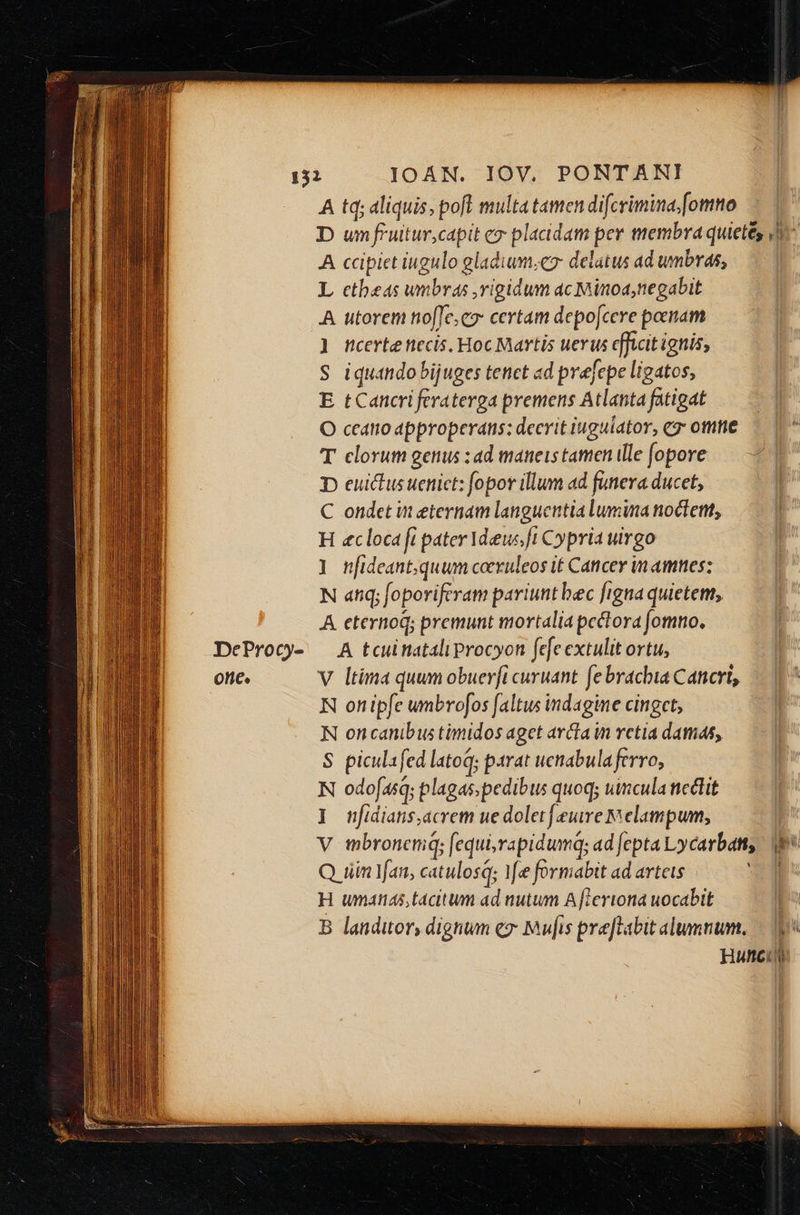 132 IOAN. IOV. PONTANI
A tq; aliquis, poſt multa tamen diſcrimina, ſomno
D um fruitur, capit & placidam per membra quietẽ,
A ccipiet iugulo gladium, & delatus ad umbras,
L ethæas umbras, rigidum ac Minoa, negabit
A utorem noſſe, & certam depoſcere pœnam
I ncertæ necis. Hoc Martis uerus efficit ignis,
S iquando bijuges tenet ad præſepe ligatos,
E t Cancri fera terga premens Atlanta fatigat
O ceano approperans: deerit iugulator, & omne
T elorum genus: ad maneis tamen ille ſopore
D euictus ueniet: ſopor illum ad funera ducet,
C ondet in æternam languentia lumina noctem,
H æc loca ſi pater Idæus, ſi Cypria uirgo
I nſideant, quum cœruleos it Cancer in amnes:
N anq; ſoporiferam pariunt hæc ſigna quietem,
A eternoq́; premunt mortalia pectora ſomno.
DeProcy- A t cui natali Procyon ſeſe extulit ortu,
one. V ltima quum obuerſi curuant ſe brachia Cancri,
N on ipſe umbroſos ſaltus indagine cinget,
N on canibus timidos aget arcta in retia damas,
S picula ſed latoq́; parat uenabula ferro,
N odoſasq́; plagas, pedibus quoq; uincula nectit
I nſidians, acrem ue dolet ſæuire Melampum,
V mbronemq́; ſequi, rapidumq́; ad ſepta Lycarban,
Q uin Iſan, catulosq́; Iſæ formabit ad arteis
H umanas, tacitum ad nutum Aſteriona uocabit
B landitor, dignum & Muſis præſtabit alumnum.
Hunc